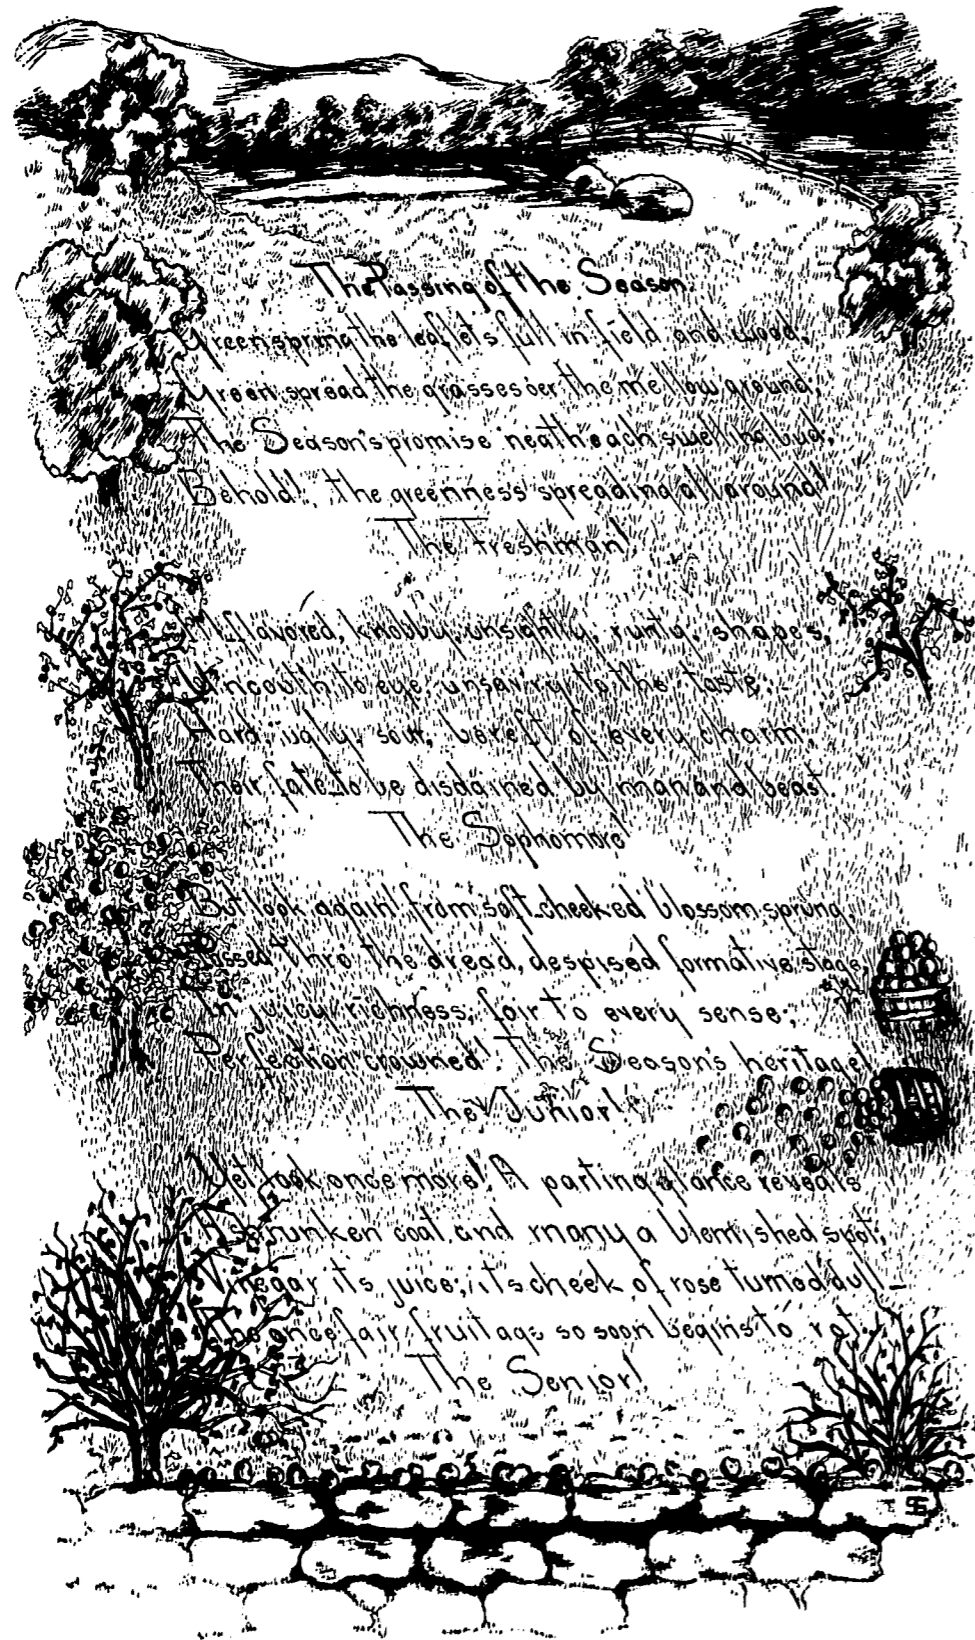 The Passing of the Season.
Green spring the leaflets full in field and wood,
Green spread the grasses o'er the mellow ground,
The Season's promise neath each swelling bud,
Behold! The greenness spreading all around!
The Freshman!
Ill flavored, knobby, unsightly, runty, shapes,
Uncouth to eye, unsavory to the taste,
Hard, ugly, sour, bereft of every charm,
Their fate to be disdained by man and beast.
The Sophomore!
But look again! from soft-cheeked blossom sprung,
Passed thro' the dread, despised formative stage,
In juicy richness, fair to every sense;
Perfection crowned! The Season's heritage!
The Junior!
Yet look once more! A parting glance reveals
A shrunken coat, and many a blemished spot;
Vinegar its juice; its cheek of rose turned dull—
The once fair fruitage so soon begins to rot.
The Senior!